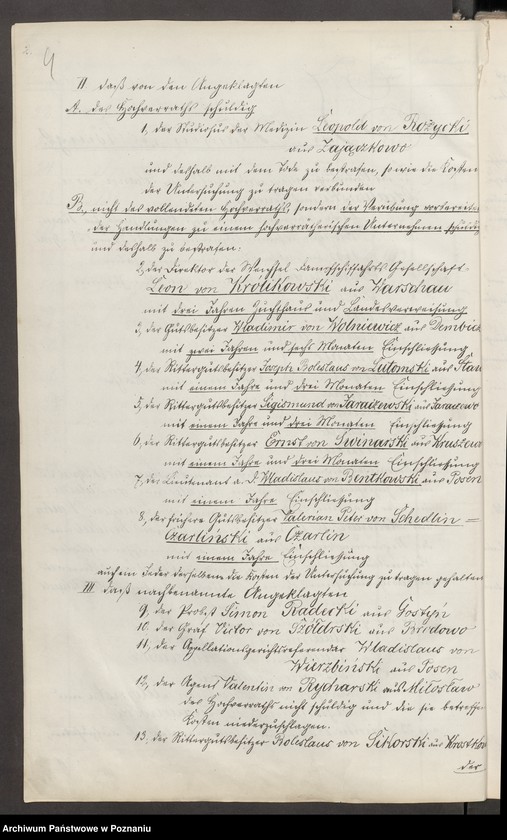 9
II daß von den Angeklagten
A. des Hochverraths schuldig
1, der Studiosus der Medizin Leopold von Rożycki
aus Zajączkowo
und deshalb mit dem Tode zu bestrafen, sowie die Kosten
der Untersuchung zu tragen verbunden
B. nicht des vollendeten Hochverraths, sondern der Verübung vorbereiten
der Handlungen zu einem hochverrätherischen Unternehmen schuldig
und deshalb zu bestrafen:
2, der Direktor der Weichsel Dampfschiffahrts Gesellschaft
Leon von Krolikowski aus Warschau
mit drei Jahren Zuchthaus und Landesverweisung
3, der Gutsbesitzer Wladimir von Wolniewicz aus
mit zwei Jahren und sechs Monaten Einschließung
4, der Rittergutsbesitzer Joseph Boleslaus von Lutomski aus
mit einem Jahre und drei Monaten Einschließung
5, der Rittergutsbesitzer Sigismund von Jaraczewski aus
mit einem Jahre und drei Monaten Einschließung
6, der Rittergutsbesitzer Ernst von Swinarski aus
mit einem Jahre und drei Monaten Einschließung
7, der Lieutenant a. D. Wladislaus von Bentkowski aus Posen
mit einem Jahre Einschließung
8, der frühere Gutsbesitzer Valerian Peter von Schedlin =
Czarliński aus Czarlin
mit einem Jahre Einschließung
auch ein Jeder derselben die Kosten der Untersuchung zu tragen gehalten
III daß nachbenannte Angeklagten
9. der Probst Simon Radecki aus Gostyń
10. der Graf Victor von Szołdrski aus Brodowo
11, der Appellationsgerichtsreferendar Wladislaus von
Wierzbiński aus Posen
12, der Agens Valentin von Rycharski aus Miłosław
des Hochverraths nicht schuldig und die sie betreffen
Kosten niederzuschlagen.
13. der Rittergutsbesitzer Boleslaus von Sikorski aus
der
Archiwum Państwowe w Poznaniu